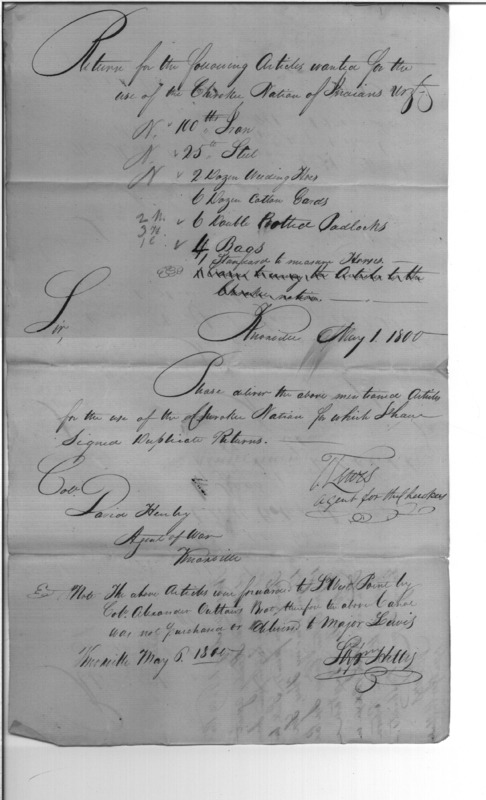 Return for the following Articles wanted for the
use of the Cherokee Nation of Indians Viz
N. 100 lbs Iron
N 25 lb Steel
N 2 Dozen Weeding Hoes
6 Dozen Cotton Cards
2 N. 6 Double Bolted Padlocks
4 Bags
1 Standard to measure Horses
the Articles to the
nation.
Sir, Knoxville May 1. 1800
Please allow the above mentioned Articles
for the use of the Cherokee Nation for which I have
Signed Duplicate Returns.
T Lewis
agent for the Cherokees
Colo.
David Henley
Agent of War
Knoxville
Note The above Articles was forwarded to S West Point by
Colo. Alexander Outlaws Boat therefore the above Canoe
was not purchased or allowed to Major Lewis
Knoxville May 6. 1800